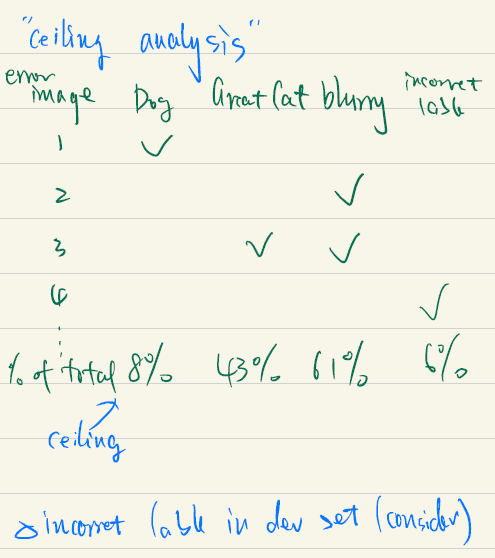 "ceiling analysis"
error image Dog Great Cat blurry incorret lable
1 ✓
2 ✓
3 ✓ ✓
4 ✓
% of total 8% 43% 61% 6%
ceiling
incorret lable in dev set (consider)